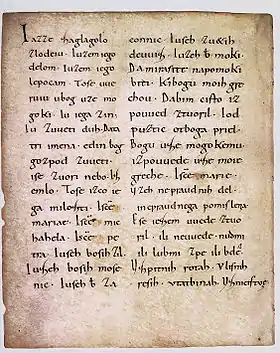 Iazze zaglagolo
zlodeiu. Iuzem iego
delom. Iuzem iego
lepocam. Tose uue
ruiu ubog uze mo
goki. Iu iega zin.
Iu zuueti duh. Data
tri imena. edin bog
gozpod zuueti. I
ise zuori nebo. Iz
emlo. Tose izco ie
ga milosti. Isce͞
mariae. Isce͞ mic
hahela. Isce͞ pe
tra. Iuseh bosih zil.
Iuseh bosih mose
nic. Iuseh bosih za
connic. Iuseh zuetih
deuuiz. Iuzeh b͞ moki.
Da mirasite napomoki
biti. Kibogu moih gre
chou. Da bim cisto iz
pouued ztuoril. Iod
puztic otboga priel.
Bogu uze mogokemu.
izpouuede uze moie
greche. Isce͞ marie.
Uzeh nepraudnih del.
inepraudnega pomislena.
Ese iesem uuede ztuo
ril. ili neuuede. nudmi
ili lubmi zpe ili bde͞.
Uzpitnih rotah. Ulisnih
resih. Utatbinah. Uznicistue.